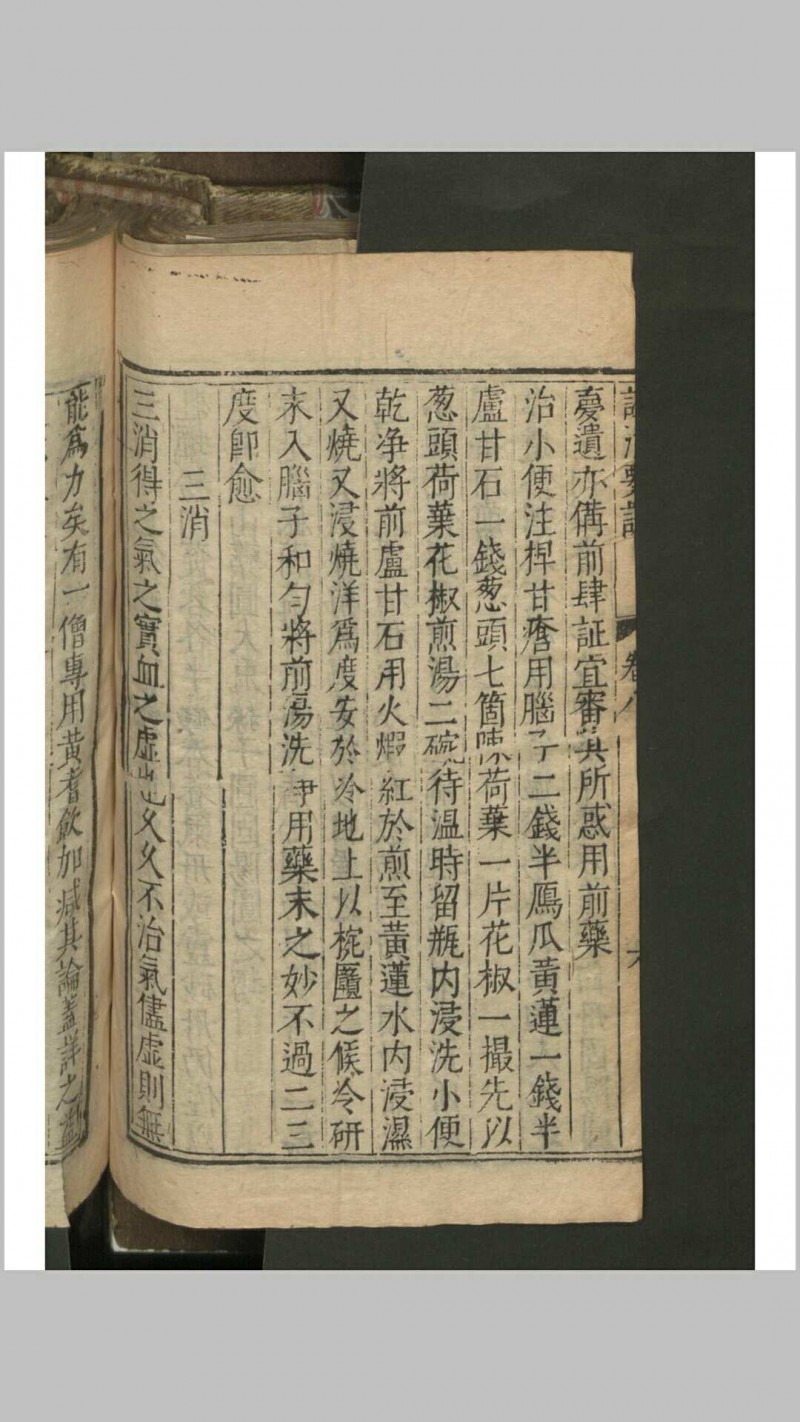 卷八
夢遺亦備前肆証宜審其所惑用前藥
治小便注桿甘瘡用腦子二錢半鴈瓜黃蓮一錢半
盧甘石一錢葱頭七箇陳荷葉一片花椒一撮先以
葱頭荷葉花椒煎湯二碗待溫時留瓶内浸洗小便
乾净將前盧甘石用火煆紅於煎至黃蓮水内浸濕
又燒又浸燒洋爲度安於冷地上以椀匱之候冷研
末入腦子和匀將前湯洗净用藥末之妙不過二三
度卽愈
三消
三消得之氣之實血之虛也久久不治氣儘虛則無
能爲力矣有一僧專用黃耆飲加减其論蓋詳之